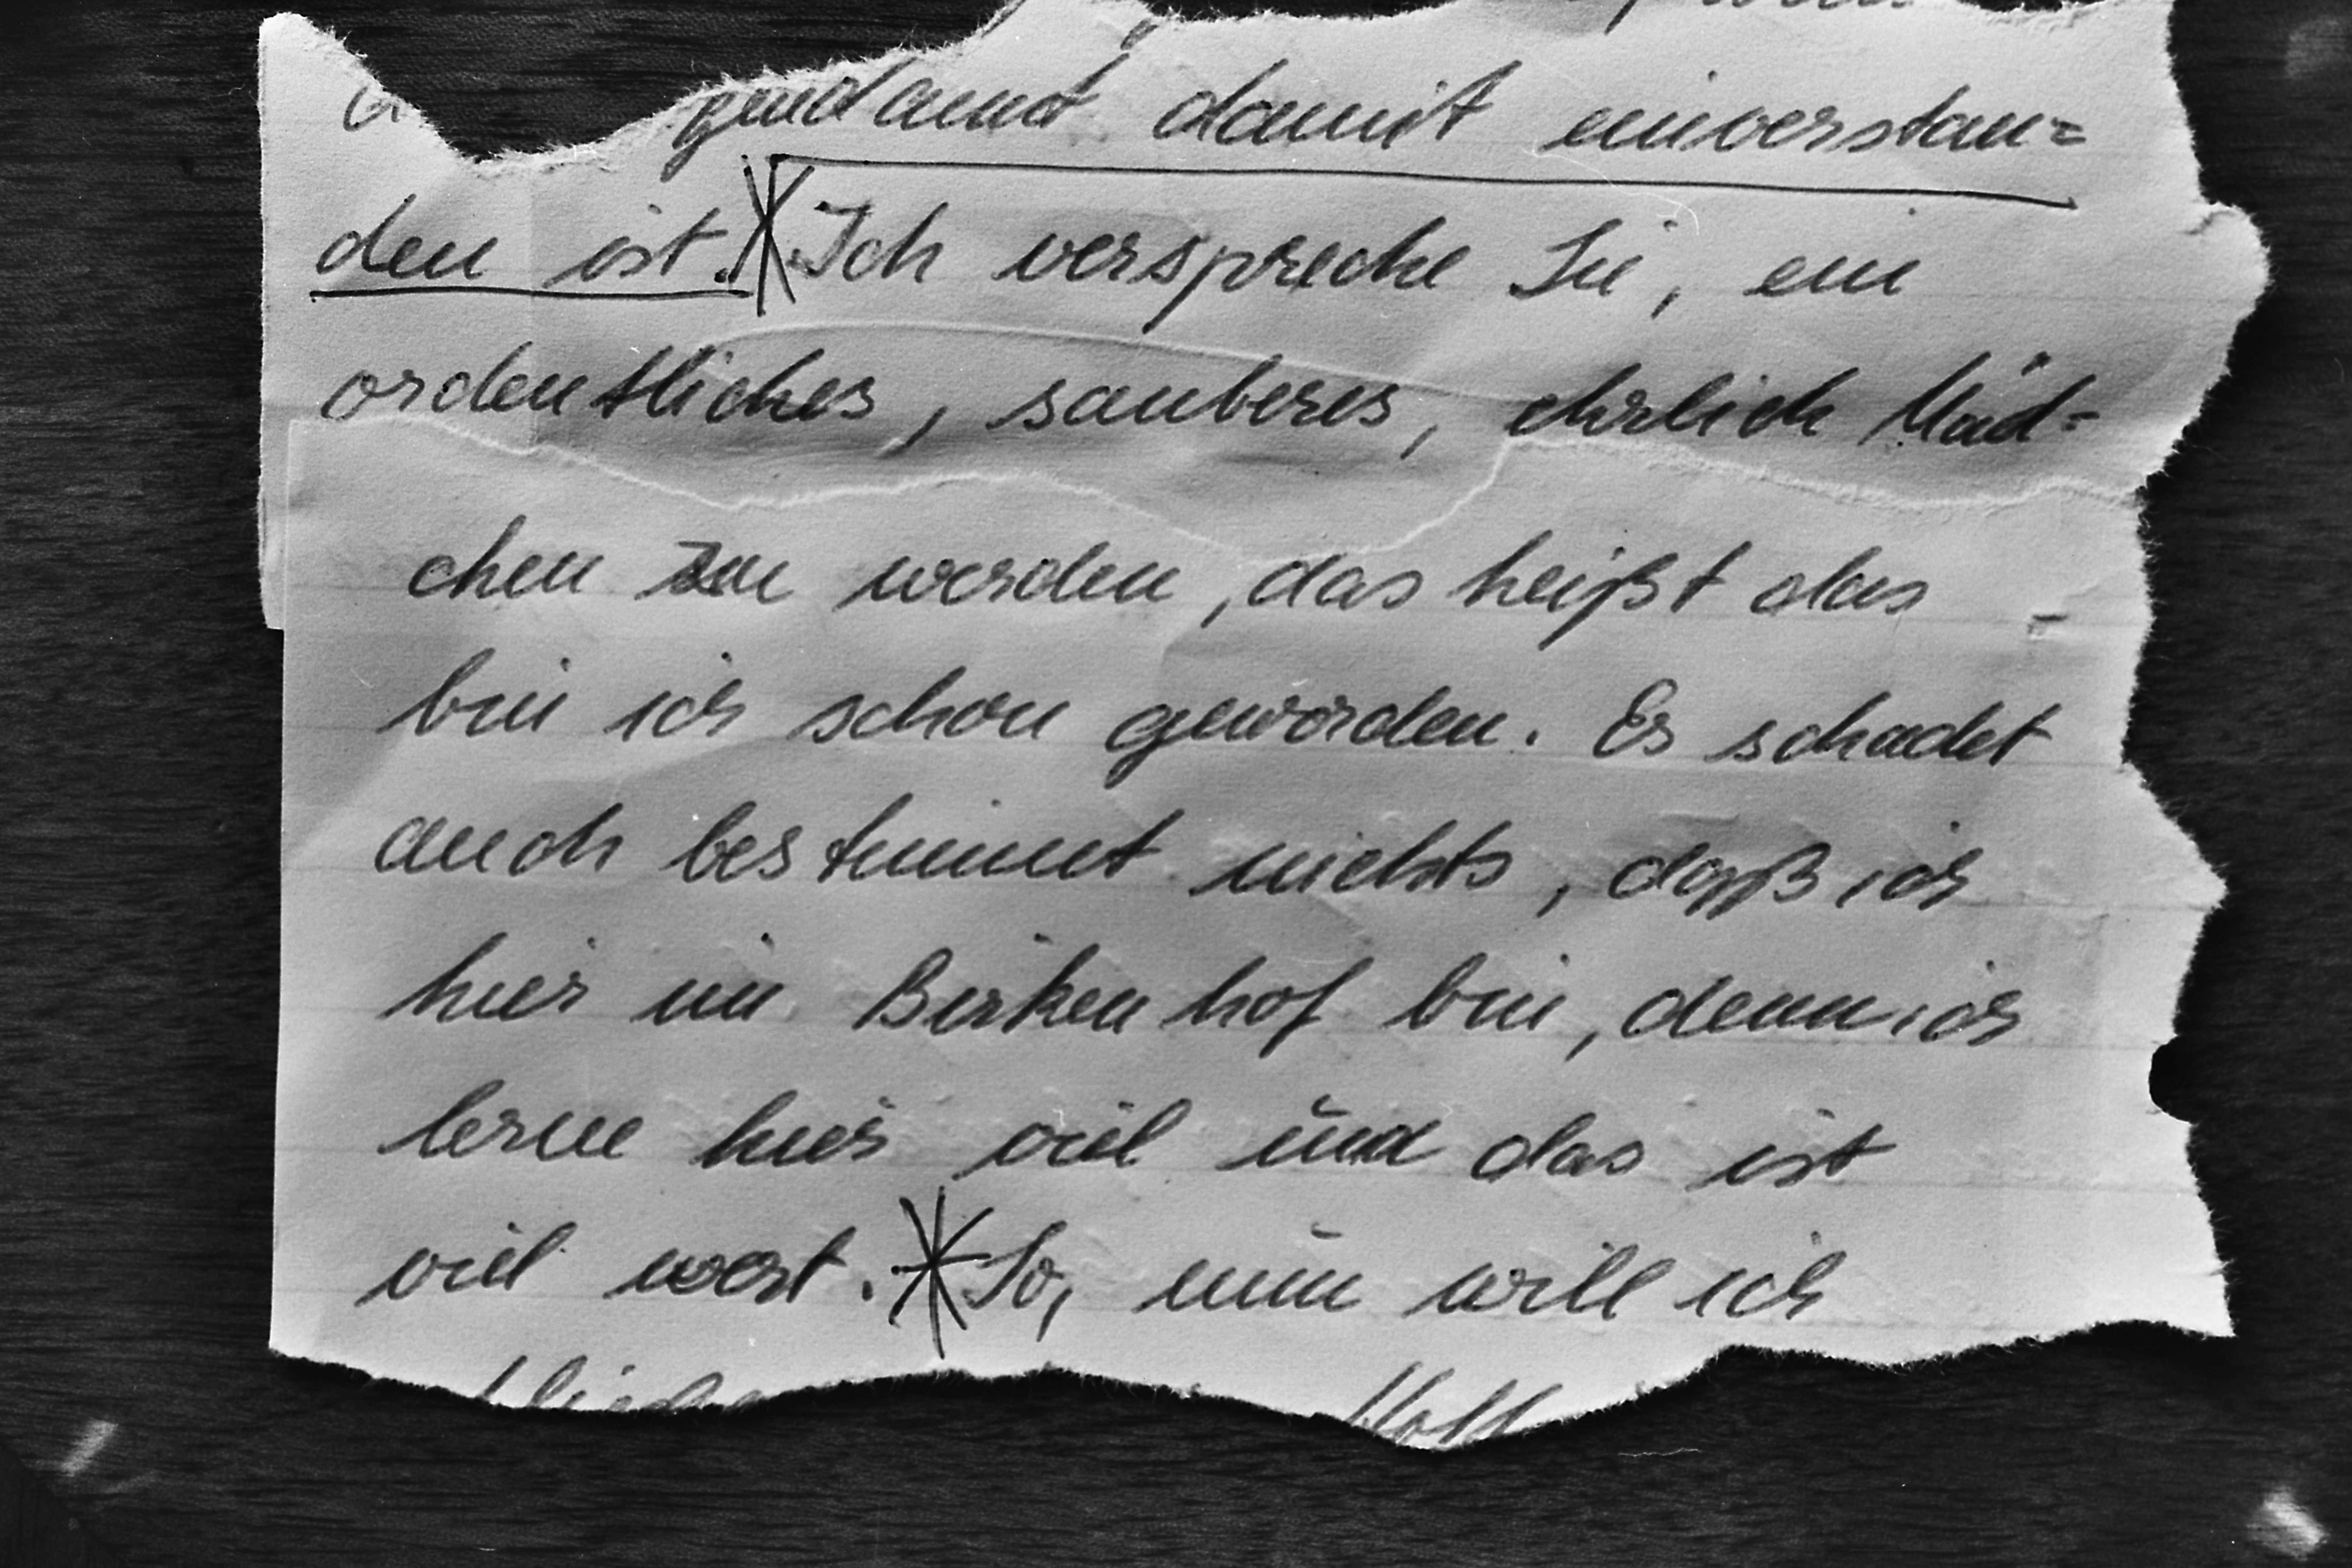 gendamt damit einverstan=
den ist. Ich verspreche Sie, ein
ordentliches, sauberes, ehrlich Mäd=
chen zu werden, das heißt das
bin ich schon geworden. Es schadet
auch bestimmt nichts, daß ich
hier im Birkenhof bin, denn ich
lerne hier viel und das ist
viel wert. So, nun will ich